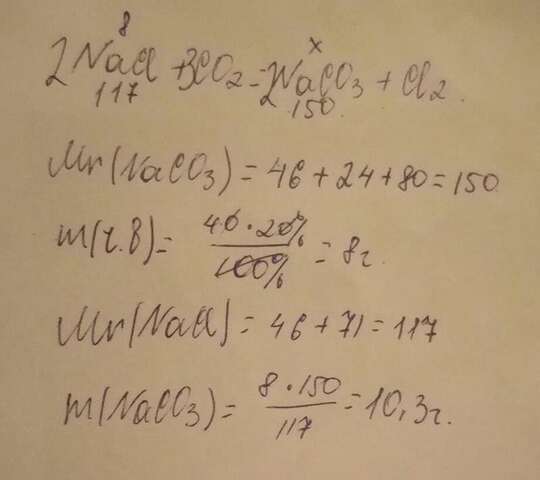 8 x
2NaCl + 3CO2 = 2NaCO3 + Cl2.
117 150
Mr(NaCO3) = 46 + 24 + 80 = 150
m(ч.в) = 40 · 20% / 100% = 8г.
Mr(NaCl) = 46 + 71 = 117
m(NaCO3) = 8 · 150 / 117 = 10,3г.